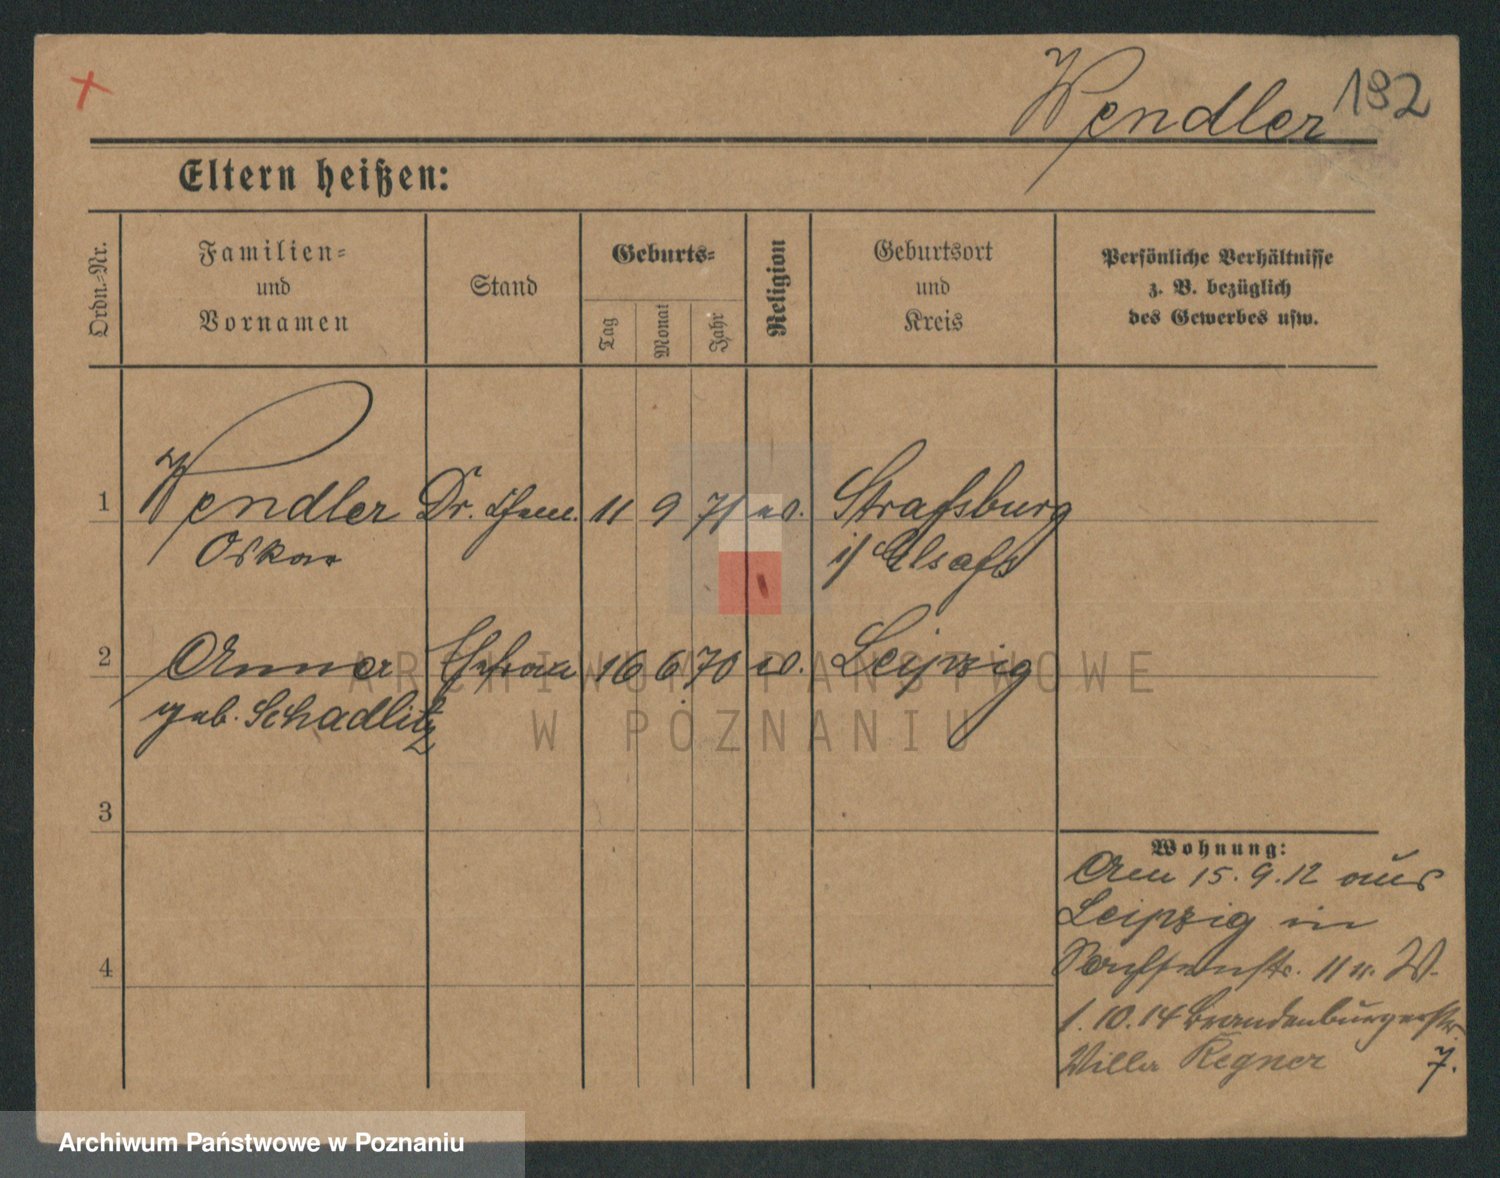 Wendler 182
Eltern heißen:
Ordn.-Nr.
Familien-
und
Vornamen
Stand
Geburts-
Tag
Monat
Jahr
Religion
Geburtsort
und
Kreis
Persönliche Verhältnisse
z. B. bezüglich
des Gewerbes usw.
1 Wendler Dr. chem. 11 9 71 ev. Strafsburg
Oskar i/ Elsafs
2 Anna Ehefrau 16 6 70 ev. Leipzig
geb. Schadlitz
3
4
Wohnung:
Am 15.9.12 aus
Leipzig in
11 n. W.
1.10.14 Brandenburgerstr.
Villa Regner 7.
ARCHIWUM PAŃSTWOWE
W POZNANIU
Archiwum Państwowe w Poznaniu